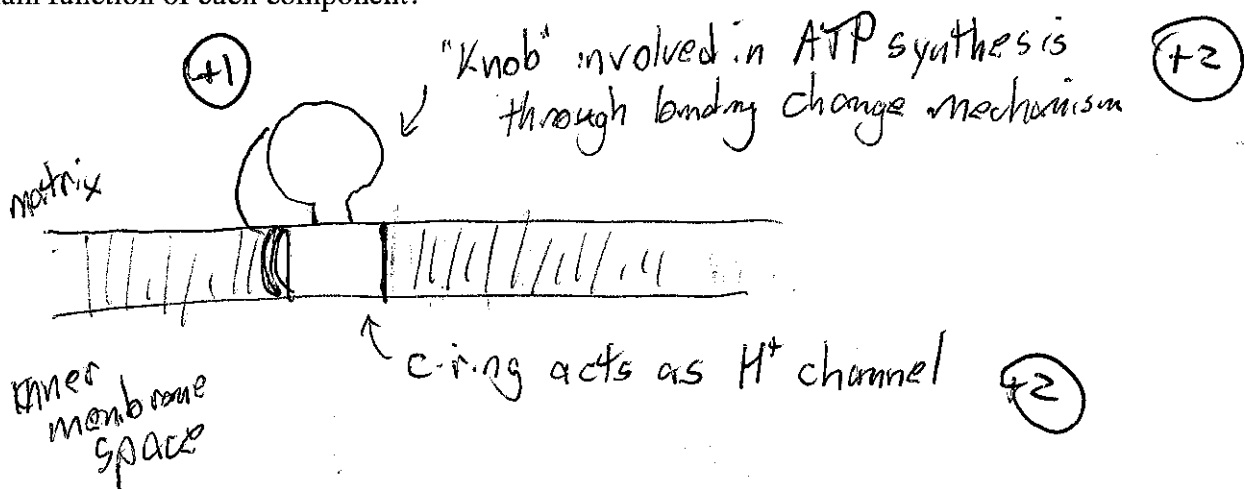 function of each component?
+1
"Knob" involved in ATP synthesis
through binding change mechanism
+2
matrix
c-ring acts as H⁺ channel
+2
inner
membrane
space